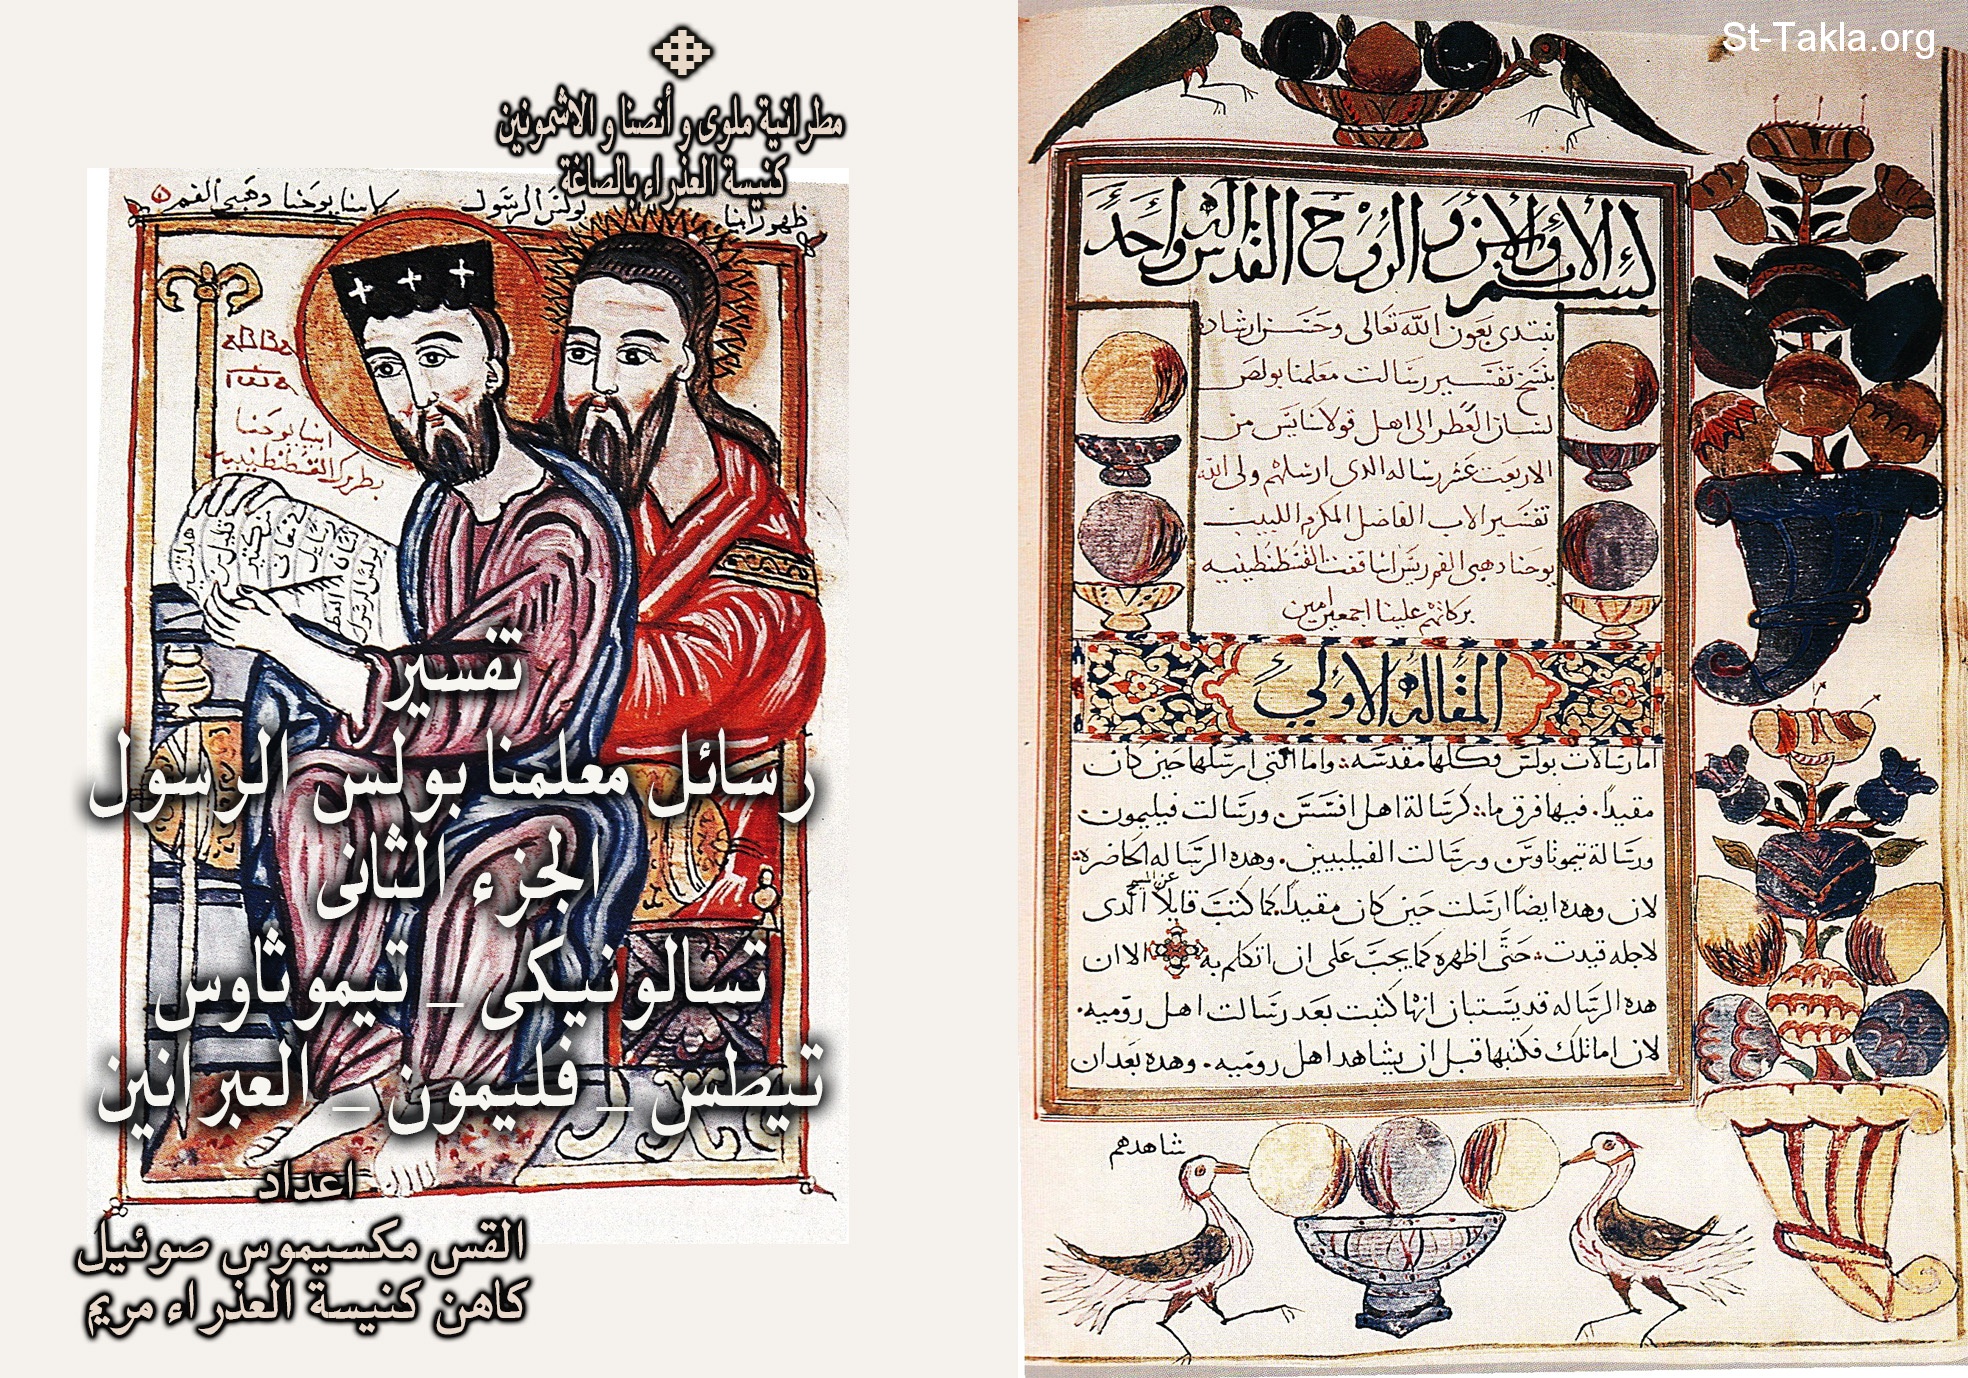 مطرانية ملوى و أنصنا و الاشمونين
كنيسة العذراء بالصاغة
ظهور ابنا بولس الرسول لابينا يوحنا دهبي الفم
ابينا يوحنا
بطريرك القسطنطينيه
تفسير
رسائل معلمنا بولس الرسول
الجزء الثانى
تسالونيكى _ تيموثاوس
تيطس _ فليمون _ العبرانين
اعداد
القس مكسيموس صوئيل
كاهن كنيسة العذراء مريم
St-Takla.org
بسم الاب والابن والروح القدس اله واحد
نبتدي بعون الله تعالى وحسن ارشاده
بنسخ تفسير رسالت معلمنا بولص
لسان العطر الى اهل قولاسايس من
الاربعت عشر رساله الدي ارسلهم ولى الله
تفسير الاب الفاضل المكرم اللبيب
يوحنا دهبي الفم ريس اساقفت القسطنطينيه
بركاتهم علينا اجمعين امين
المقاله الاولي
اما رسالات بولس فكلها مقدسه واما التي ارسلها حين كان
مقيدًا. فيها فرق ما. كرسالة اهل افسس ورسالت فيليمون
ورسالة تيموتاوس ورسالت الفيلبيين. وهده الرساله الحاضره
لان وهده ايضًا ارسلت حين كان مقيدًا. كما كتب قايلاً عن المسيح الدى
لاجله قيدت حتى اظهره كما يجب على ان اتكلم به الا ان
هده الرساله قد يستبان انها كتبت بعد رسالت اهل روميه.
لان اما تلك فكتبها قبل ان يشاهد اهل روميه. وهده بعد ان
شاهدهم